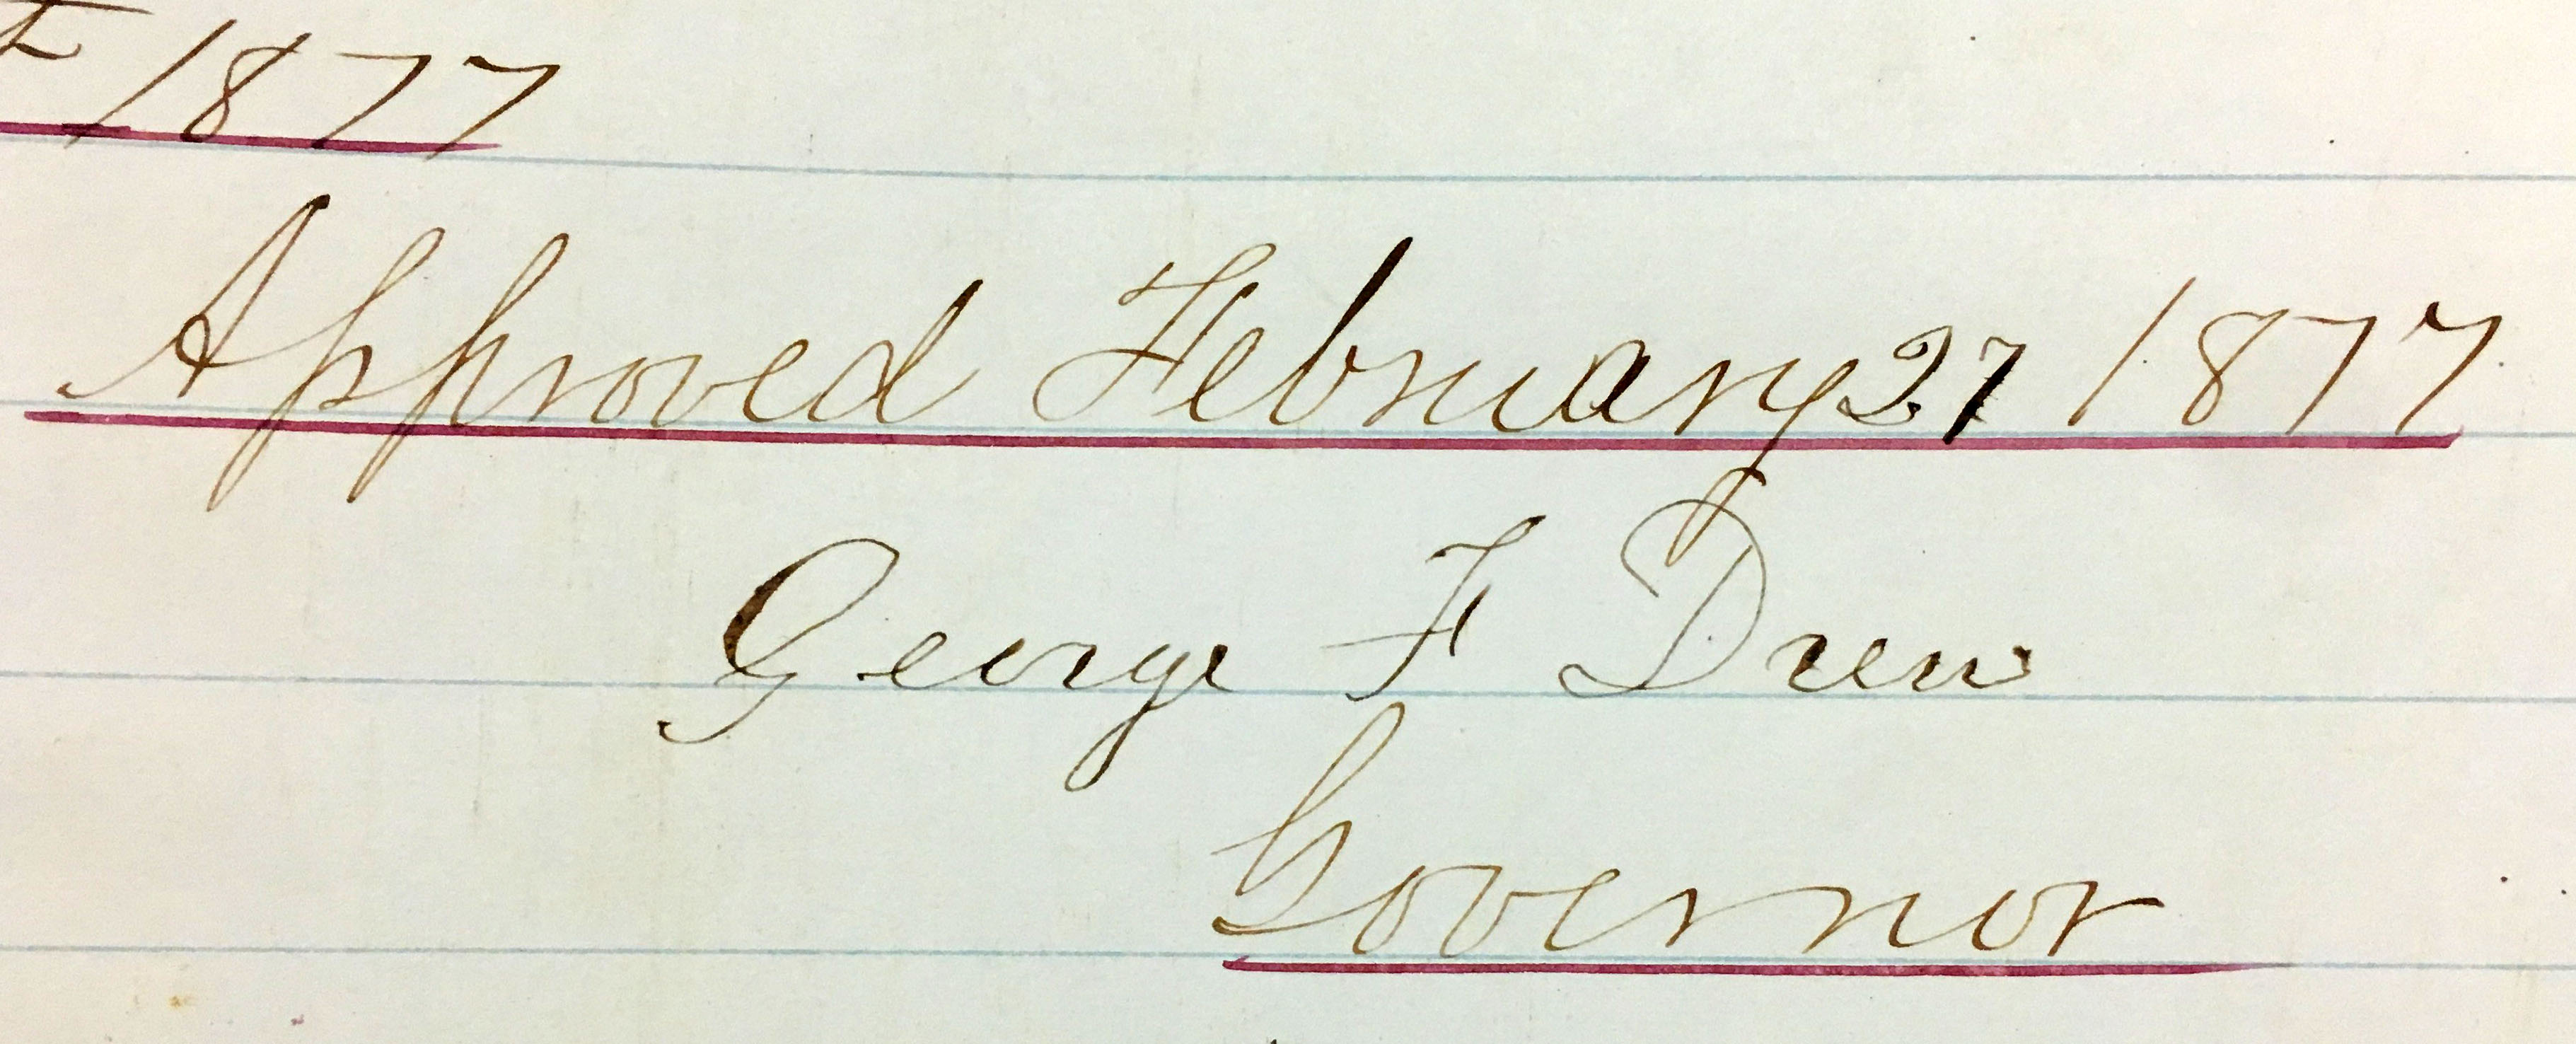 1877
Approved February 27 1877
George F Drew
Governor